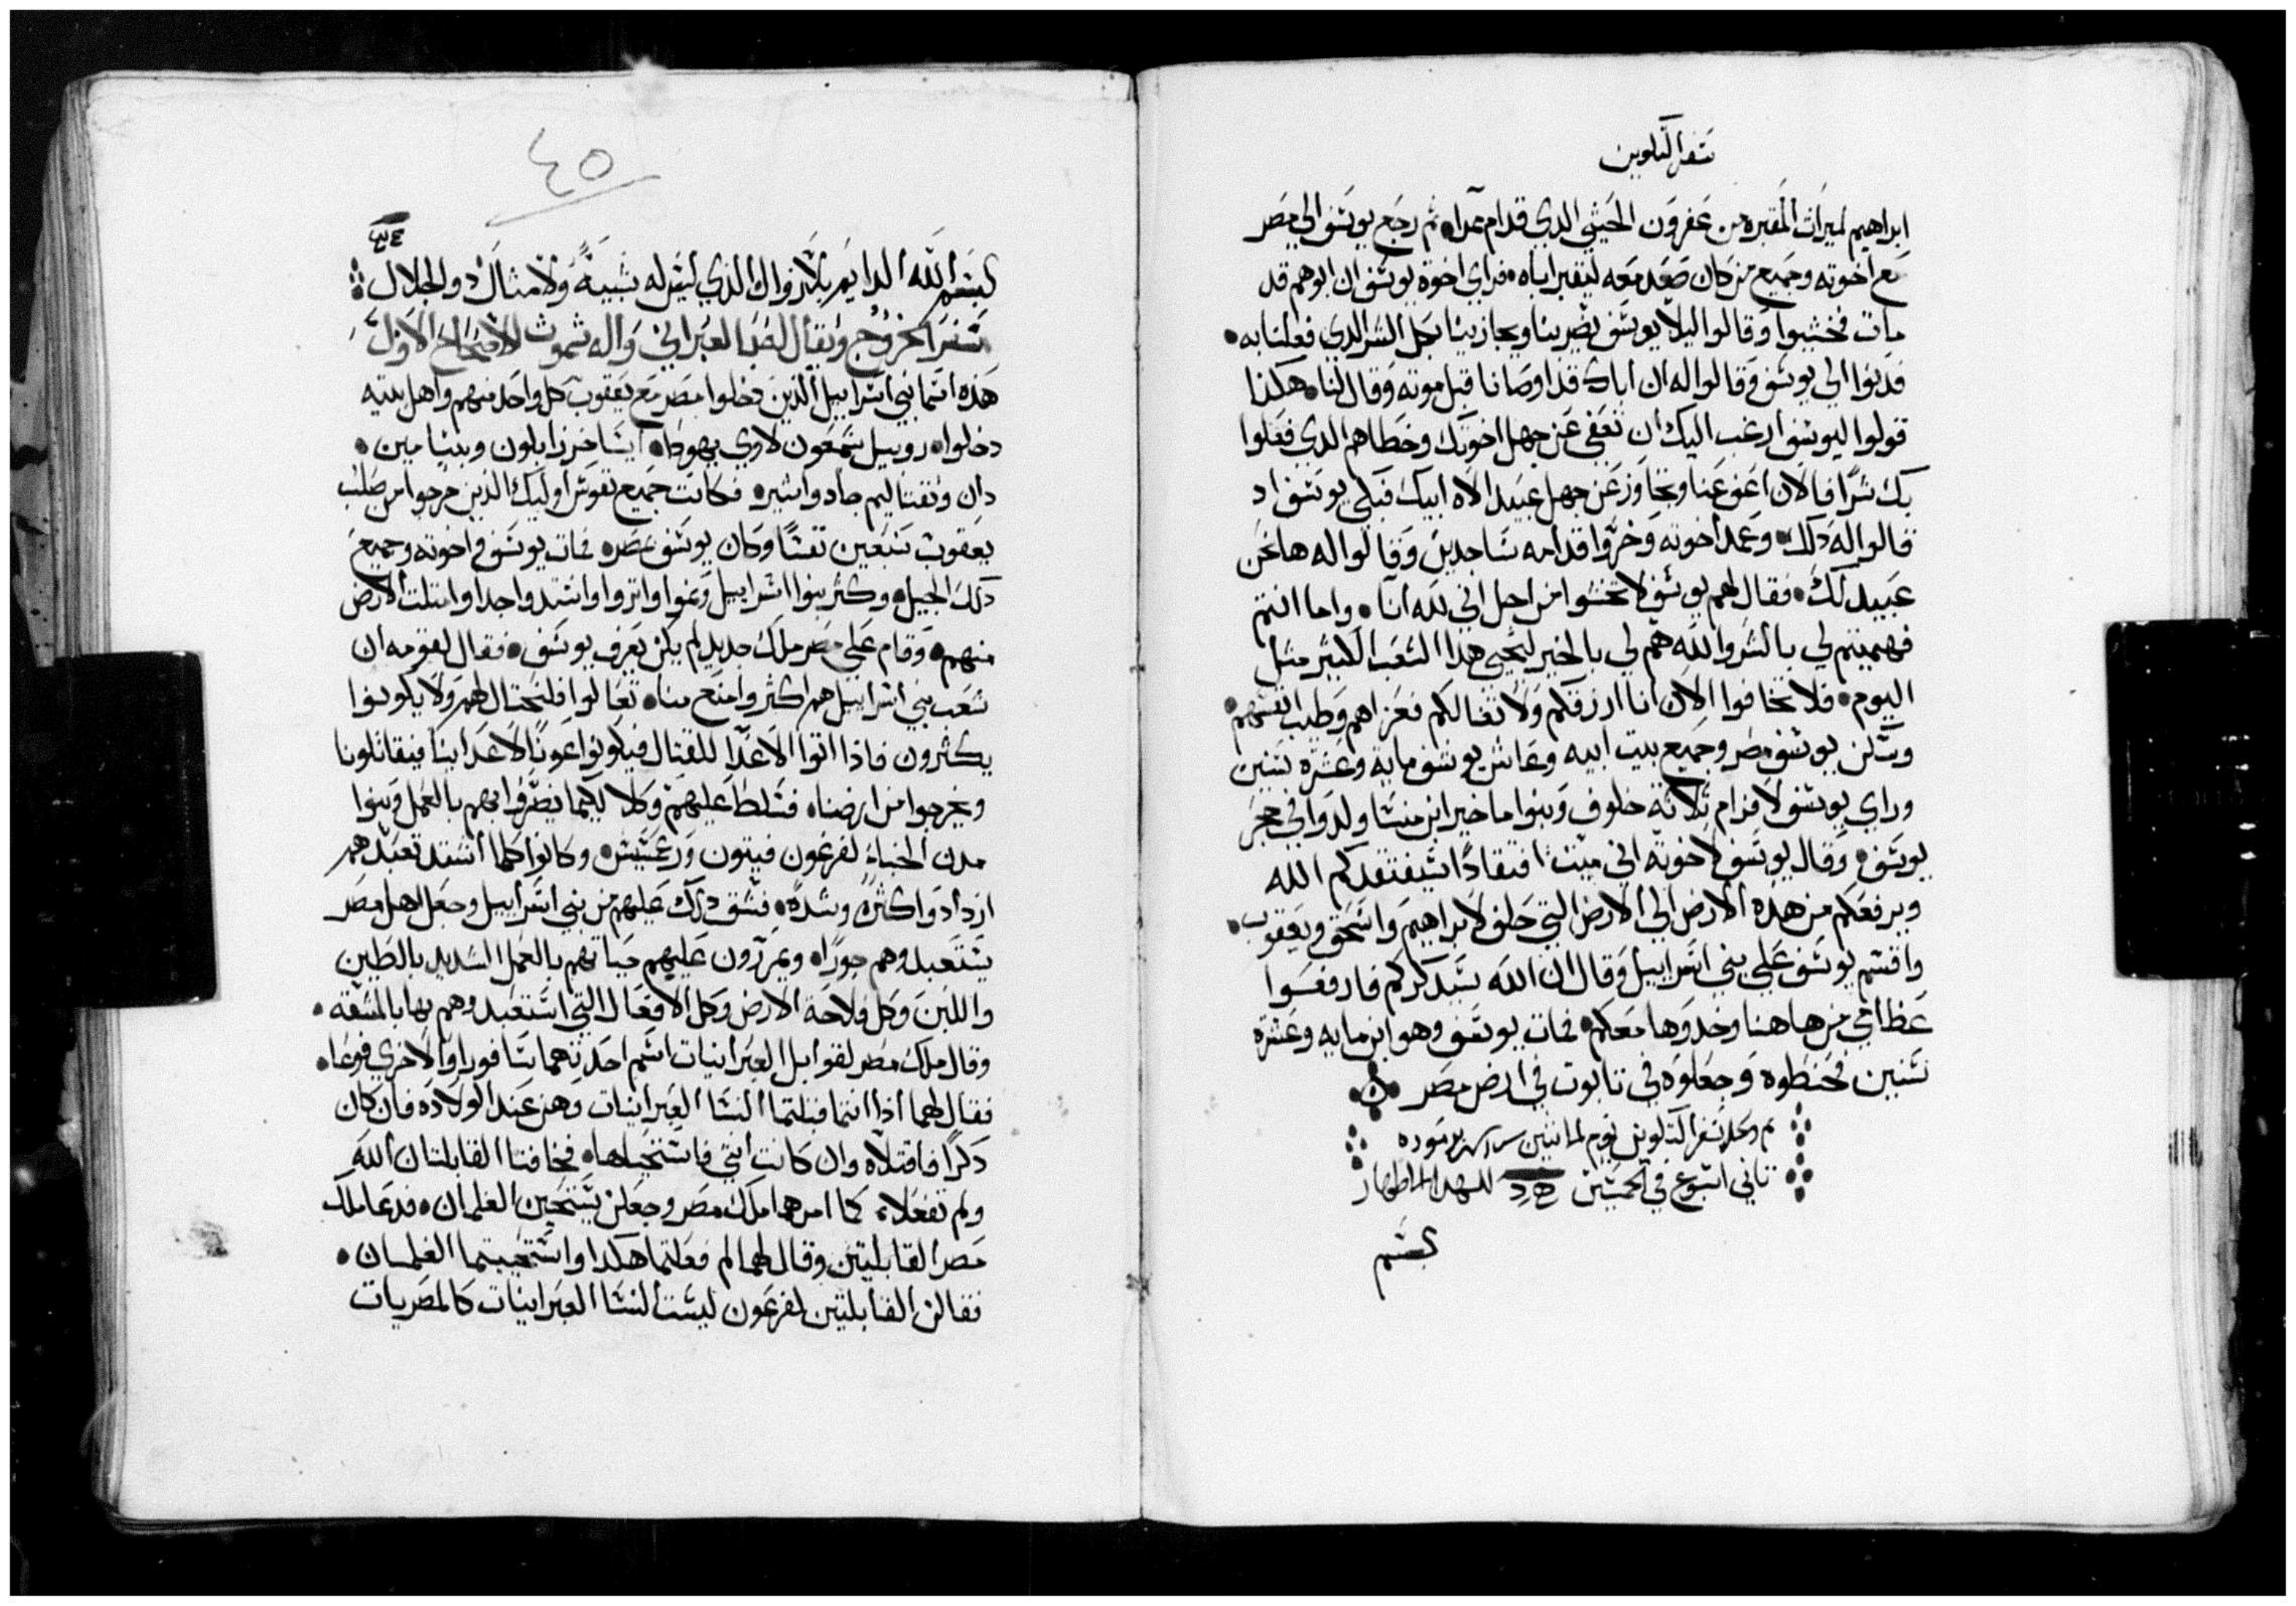 سفر التكوين
ابراهيم لميراث المقبره من عفرون الحيثي الدي قدام ممرا ثم رجع يوسف الي مصر
مع اخوته وجميع من كان صعد معه ليقبر اباه فراي اخوة يوسف ان ابوهم قد
مات فخشيوا وقالوا ليلا يوسف يضربنا ويجازينا بجل الشر الدي فعلنا به
فدنوا الي يوسف وقالوا له ان اباك قد اوصانا قبل موته وقال لنا هكذا
قولوا ليوسف ارغب اليك ان تعفي عن جهل اخوتك وخطاهم الدي فعلوا
بك شرا فالان اعفو عنا وتجاوز عن جهل عبيد الاه ابيك فبكي يوسف اد
قالوا له دلك وعمد اخوته وخروا قدامه ساجدين وقالوا له ها نحن
عبيد لك فقال لهم يوسف لا تخشوا من اجل اني لله انا واما انتم
فهميتم لي بالشر والله هم لي بالخير ليحيي هدا الشعب الكبير مثل
اليوم فلا تخافوا الان انا ارزقكم ولا تفالكم فعزاهم وطيب انفسهم
وسكن يوسف مصر وجميع بيت ابيه وعاش يوسف مايه وعشره سنين
وراي يوسف لافرام ثلاثة خلوف وبنوا ماخير ابن منسا ولدوا في حجر
يوسف وقال يوسف لاخوته اني ميت افتقادا سيفتقدكم الله
ويرفعكم من هده الارض الي الارض التي حلف لابراهيم واسحق ويعقوب
واقسم يوسف علي بني اسراييل وقال ان الله سيدكركم فارفعوا
عظامي من هاهنا وخدوها معكم فمات يوسف وهو ابن مايه وعشرة
سنين فحنطوه وجعلوه في تابوت في ارض مصر
تم وكمل سفر التكوين يوم الاثنين برموده
تاني اسبوع في الخمسين للشهدا الاطهار
بسم
٤٥
بسم الله الدايم بلا زوال الذي ليس له شبيه ولا مثال دو الجلال
سفر الخروج ويقال له بالعبراني واله شموث الاصحاح الاول
هذه اسما بني اسراييل الذين دخلوا مصر مع يعقوب كل واحد منهم واهل بيته
دخلوا روبيل شمعون لاوي يهودا ايساخر زابلون وبنيامين
دان ونفتاليم جاد واشير فكانت جميع نفوس اوليك الذين خرجوا من صلب
يعقوب سبعين نفسا وكان يوسف بمصر فمات يوسف واخوته وجميع
دلك الجيل وكثر بنوا اسراييل ونموا واثروا واشتدوا جدا وامتلت الارض
منهم وقام علي مصر ملك جديد لم يكن يعرف يوسف فقال لقومه ان
شعب بني اسراييل هم اكثر وامنع منا تعالوا فلنحتال لهم ولا يكونوا
يكثرون فاذا اتوا الاعدا للقتال فيكونوا عونا لاعداينا فيقاتلونا
ويخرجوا من ارضنا فسلط عليهم وكلا ليكيما يضروا بهم بالعمل وبنوا
مدن الخباء لفرعون فيتون ورعمسيس وكانوا كلما اشتد تعبدهم
ازدادوا كثرة وشدة فشق دلك عليهم من بني اسراييل وجعل اهل مصر
يستعبدوهم جورا ويمررون عليهم حياتهم بالعمل الشديد بالطين
واللبن وكل فلاحة الارض وكل الافعال التي استعبدوهم بها بالمشقه
وقال ملك مصر لقوابل العبرانيات اسم احدتهما سافورا والاخري فوعا
فقال لهما اذا انتما قبلتما النسا العبرانيات وهن عند الولاده فان كان
دكرا فاقتلاه وان كانت انثي فاستحيياها فخافتا القابلتان الله
ولم تفعلا كما امرهما ملك مصر وجعلن يستحيين الغلمان فدعا ملك
مصر القابلتين وقال لهما لم فعلتما هكدا واستحييتما الغلمان
فقالن القابلتين لفرعون ليست النسا العبرانيات كالمصريات